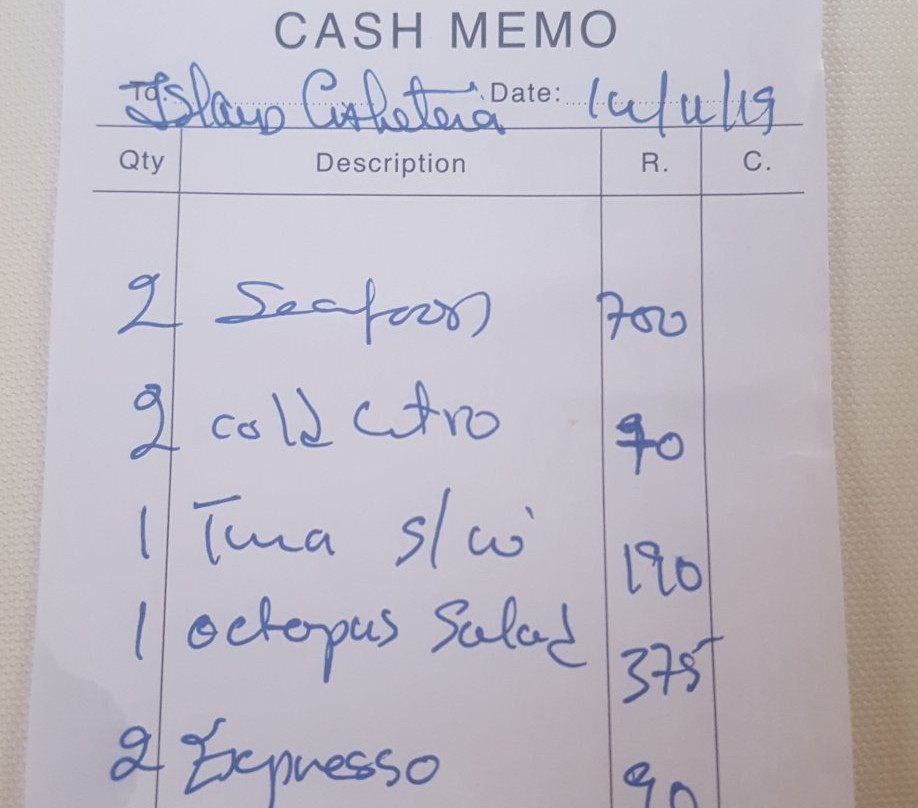 CASH MEMO
To: Island Date: 14/11/19
Qty Description R. C.
2 Seafood 700
2 cold citro 90
1 Tuna s/wi 190
1 octopus Salad 375
2 Expresso 90